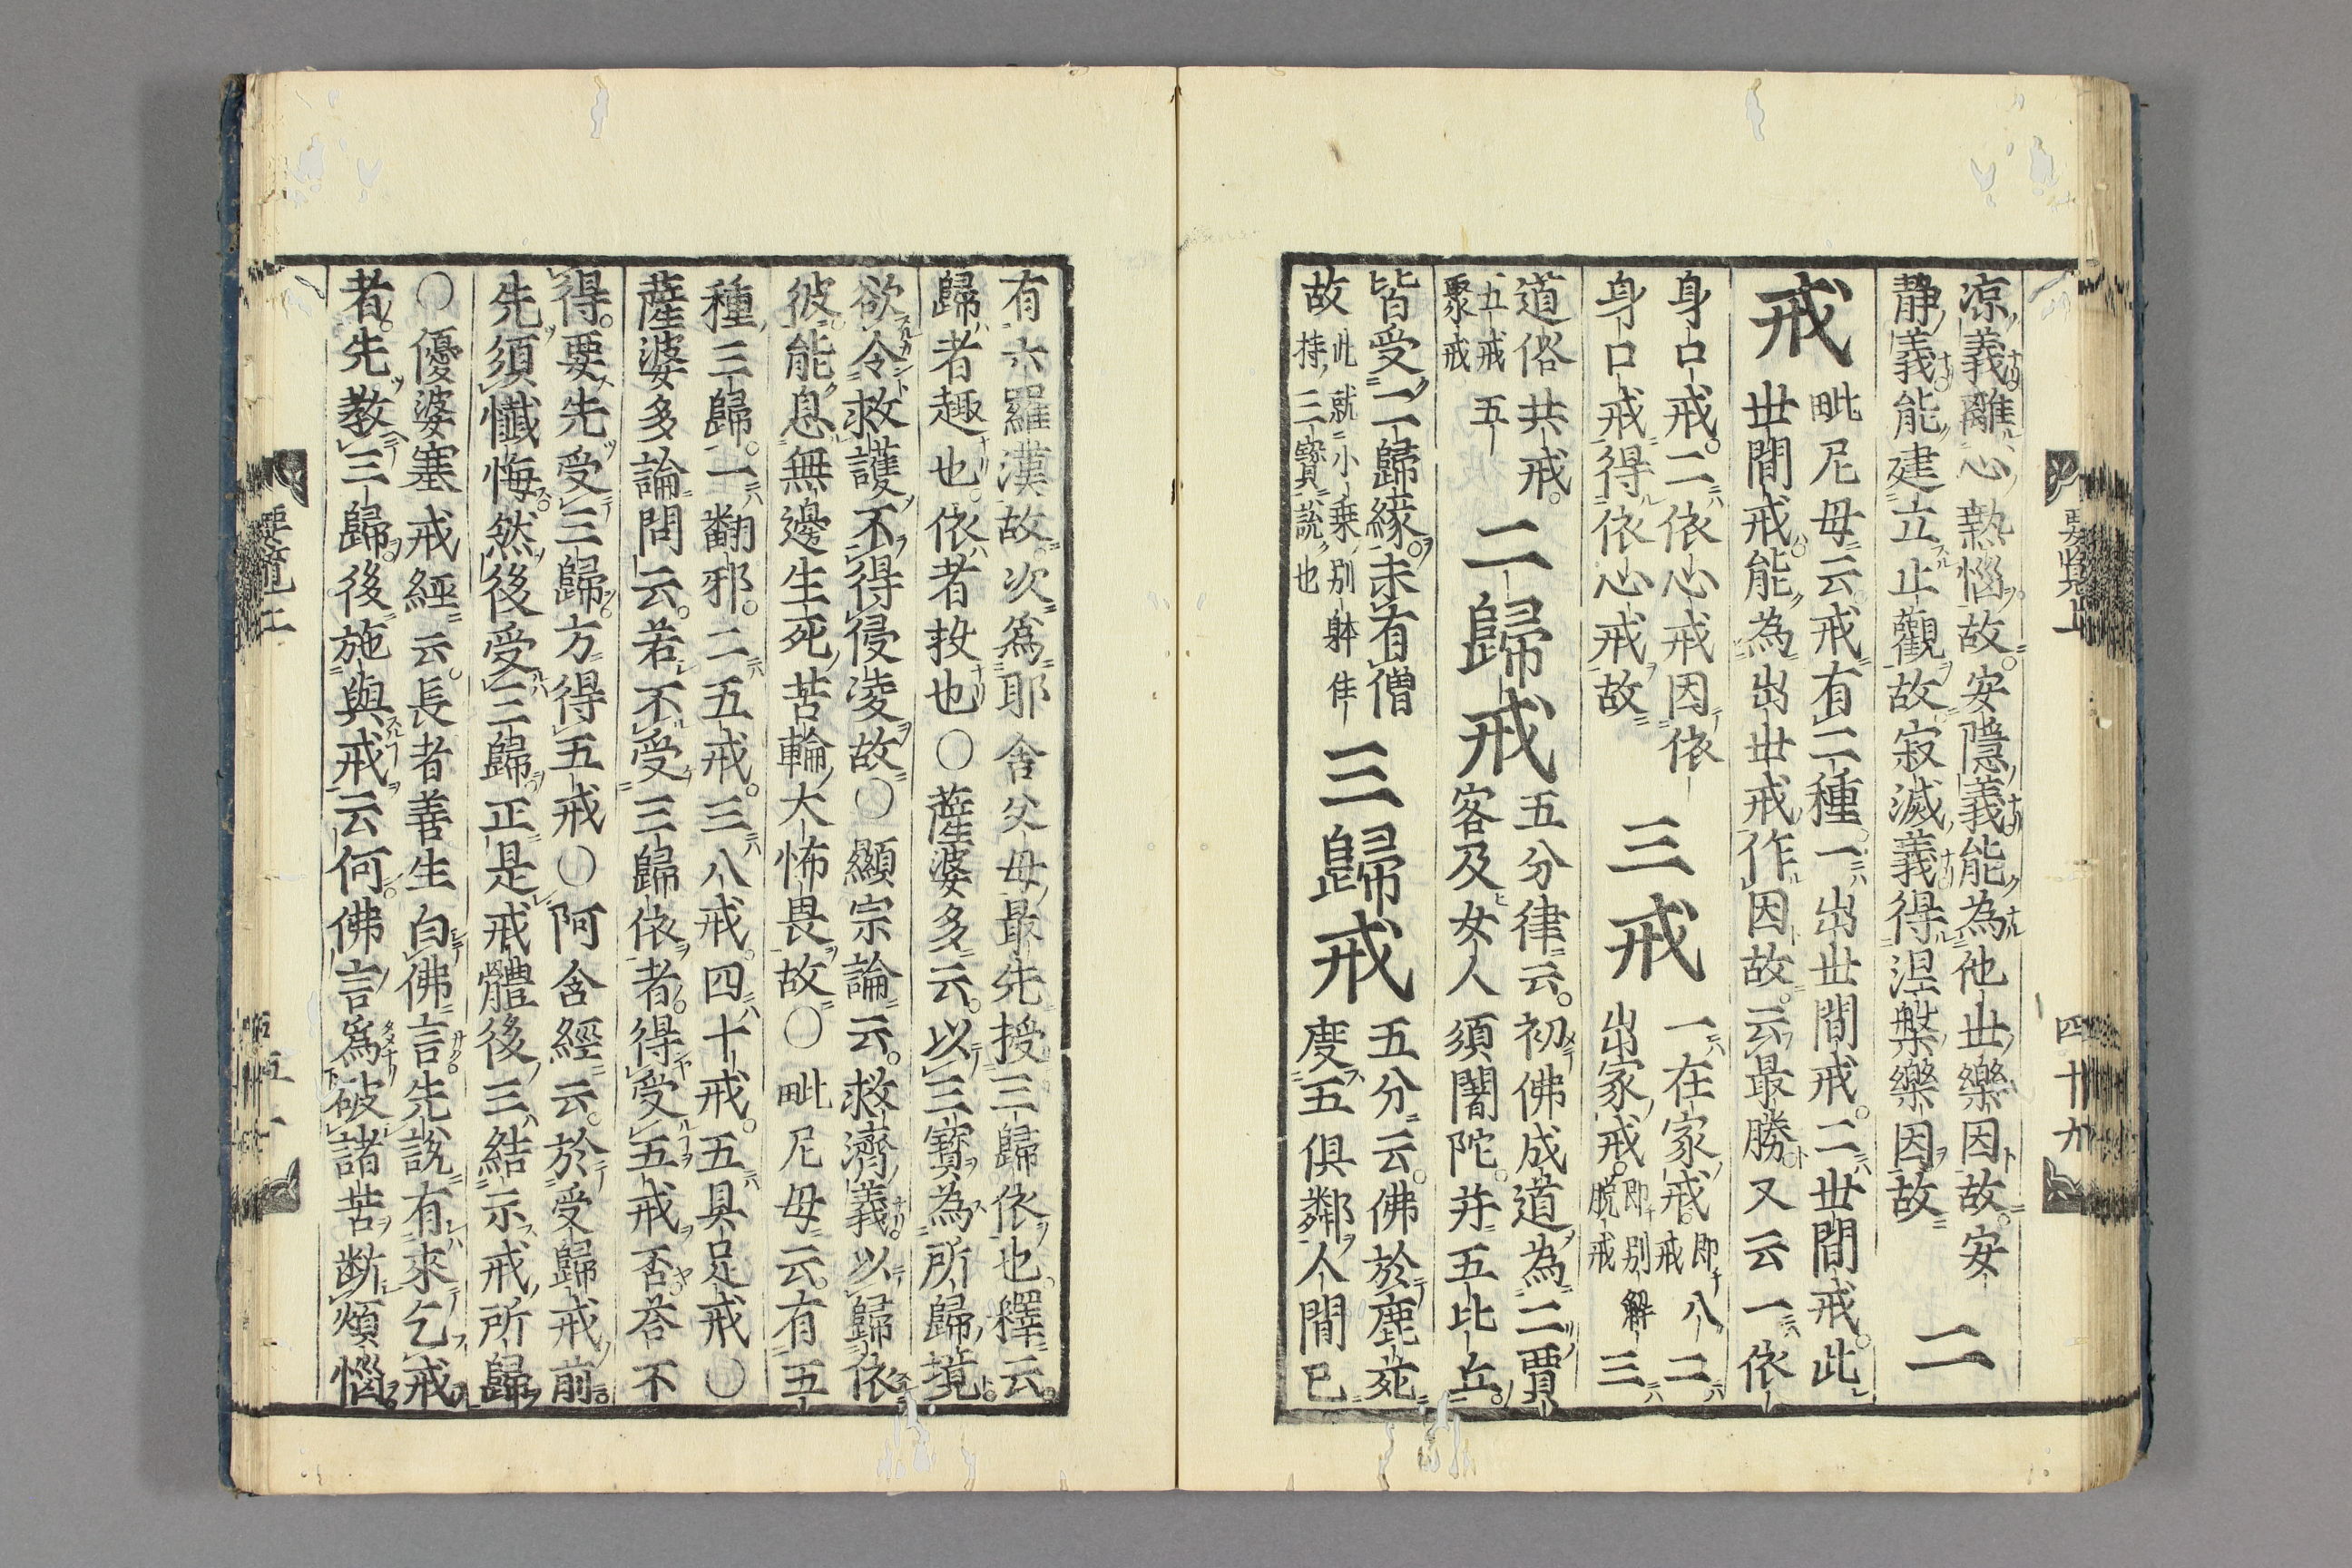 凉義離心熱惱故安隱義能為他世樂因故安
静義能建立止觀故寂滅義得涅槃樂因故
二
戒
毗尼母云戒有二種一出世間戒二世間戒此
世間戒能為出世戒作因故云最勝又云一依
身口戒二依心戒因依
身口戒得依心戒故
三戒
一在家戒即八戒二
出家戒即別解脱戒三
道俗共戒
五戒五
聚戒
二歸戒
五分律云初佛成道為二賈
客及女人須闍陀并五比丘
皆受二歸緣未有僧
故
此就小乗別躰住
持三寳説也
三歸戒
五分云佛於鹿苑
度五俱鄰人間已
要覧上
四十九
有六羅漢故次爲耶舍父母最先授三歸依也釋云
歸者趣也依者救也〇薩婆多云以三寶為所歸境
欲令救護不得侵凌故〇顯宗論云救濟義以歸依
彼能息無邊生死苦輪大怖畏故〇毗尼母云有五
種三歸一翻邪二五戒三八戒四十戒五具足戒〇
薩婆多論問云若不受三歸依者得受五戒否答不
得要先受三歸方得五戒〇阿含經云於受歸戒前
先須懺悔然後受三歸正是戒體後三結示戒所歸
〇優婆塞戒經云長者善生白佛言先説有來乞戒
者先教三歸後施與戒云何佛言爲破諸苦断煩惱